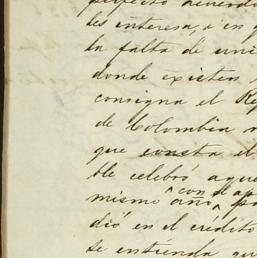 perfecto acuerdo
les interesa, i en q
la falta de uni
donde existen
consigna el Re
de Colombia
que consta el
ble celebró aque
mismo año, con el ap
dió en el crédito
se entienda qu